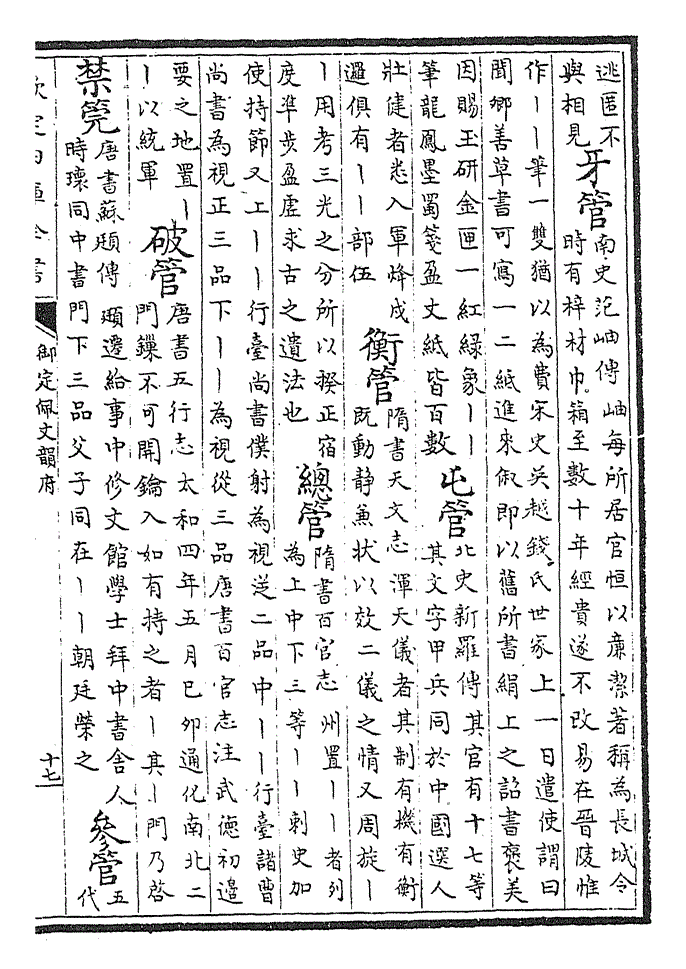 逃匿不
與相見
牙管
南史范岫傳 岫每所居官恒以廉潔著稱為長城令
時有梓材巾箱至數十年經貴遂不改易在晉陵惟
作丨丨筆一雙猶以為費宋史吳越錢氏世家上一日遣使謂曰
聞卿善草書可寫一二紙進來俶即以舊所書絹上之詔書褒美
因賜玉研金匣一紅綠象丨丨
筆龍鳳墨蜀箋盈丈紙皆百數
屯管
北史新羅傳 其官有十七等
其文字甲兵同於中國選人
壯健者悉入軍烽戍
邏俱有丨丨部伍
衡管
隋書天文志 渾天儀者其制有機有衡
既動靜兼狀以效二儀之情又周旋丨
丨用考三光之分所以揆正宿
度準步盈虛求古之遺法也
總管
隋書百官志 州置丨丨者列
為上中下三等丨丨刺史加
使持節又上丨丨行臺尚書僕射為視從二品中丨丨行臺諸曹
尚書為視正三品下丨丨為視從三品唐書百官志注武德初邊
要之地置丨
丨以統軍
破管
唐書五行志 太和四年五月己卯通化南北二
門鏁不可開鑰入如有持之者丨其丨門乃啓
禁筦
唐書蘇頲傳 頲遷給事中修文館學士拜中書舍人
時瓌同中書門下三品父子同在丨丨朝廷榮之
參管
五
代
欽定四庫全書
御定佩文韻府
十七